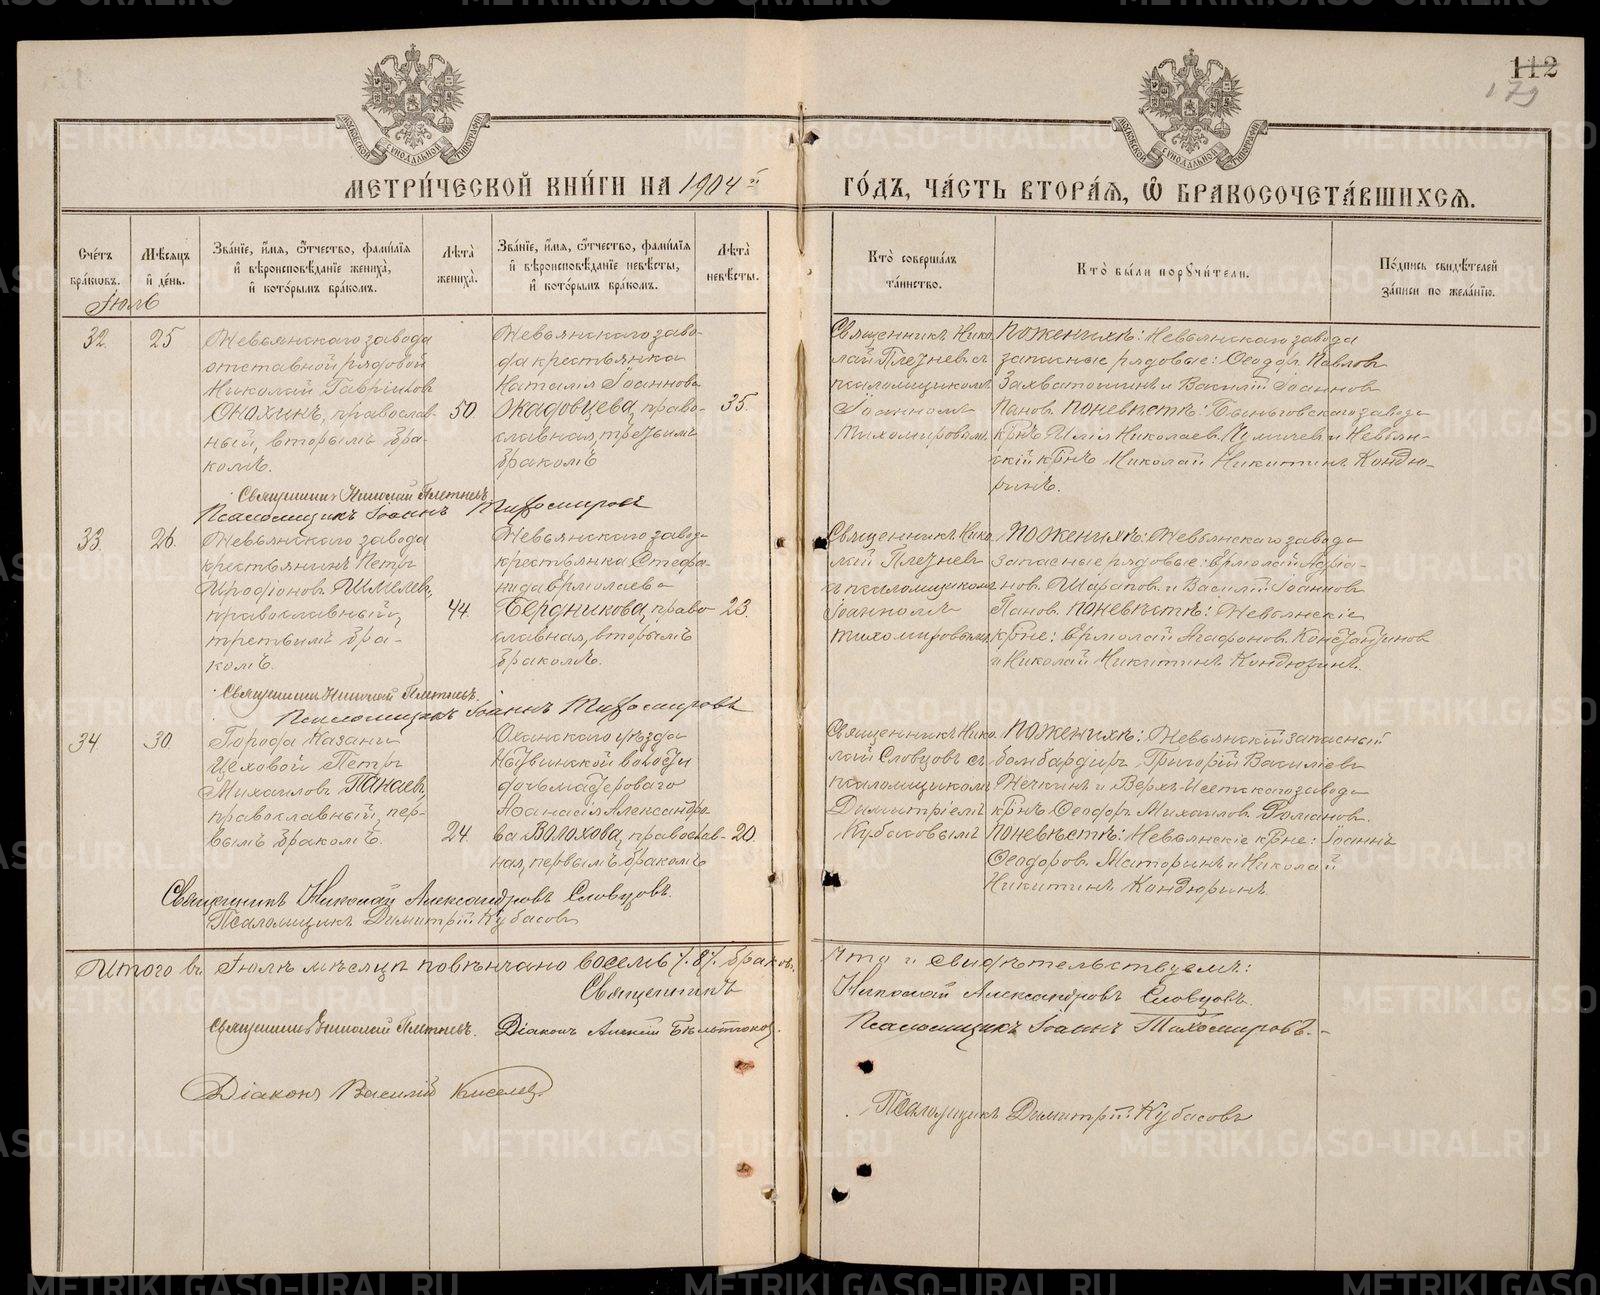 112
179
МЕТРИ́ЧЕСКОЙ КНИ́ГИ НА 1904 й
ГО́ДЪ, ЧА́СТЬ ВТОРА́Я, Ѽ БРАКОСОЧЕТА́ВШИХСЯ.
Сче́тъ бра́кѡвъ.
Мѣ́сяцъ и҆ де́нь.
Зва́нїе, и҆́мя, ѻ҆́тчество, фами́лїя и҆ вѣроисповѣ́данїе жениха̀, и҆ кото́рымъ бра́комъ.
Лѣ́та жениха̀.
Зва́нїе, и҆́мя, ѻ҆́тчество, фами́лїя и҆ вѣроисповѣ́данїе невѣ́сты, и҆ кото́рымъ бра́комъ.
Лѣ́та невѣ́сты.
Кто̀ соверша́лъ та́инство.
Кто̀ бы́ли порꙋчи́тели.
По́дпись свидѣ́телей за́писи по жела́нїю.
Іюль
32.
25
Невьянскаго завода
отставной рядовой
Николай Гавріиловъ
Снохинъ, православ-
ный, вторымъ бра-
комъ.
50.
Невьянскаго заво-
да крестьянка
Наталія Іоаннова
Жадовцева, право-
славная, третьимъ
бракомъ
35.
Священникъ Нико
лай Плетневъ съ
псаломщикомъ
Іоанномъ
Тихомировымъ.
По женихѣ: Невьянскаго завода
запасные рядовые: Ѳеодоръ Павловъ
Захватошинъ и Василій Іоанновъ
Пановъ. По невѣстѣ: Быньговскаго завода
кр-нъ Илія Николаевъ Чумичевъ и Невьян-
скій кр-нъ Николай Никитинъ Кондю-
ринъ.
Священникъ Николай Плетневъ.
Псаломщикъ Іоаннъ Тихомировъ
33.
26.
Невьянскаго завода
крестьянинъ Петръ
Иродіоновъ Шмелевъ,
православный,
третьимъ бра-
комъ.
44.
Невьянскаго завода
крестьянка Стефа-
нида Ермолаева
Бердникова, право-
славная, вторымъ
бракомъ.
23.
Священникъ Нико
лай Плетневъ
съ псаломщикомъ
Іоанномъ
Тихомировымъ
По женихѣ: Невьянскаго завода
запасные рядовые: Ермолай Адріа-
новъ Шараповъ и Василій Іоанновъ
Пановъ. По невѣстѣ: Невьянскіе
кр-не: Ермолай Агафоновъ Константиновъ
и Николай Никитинъ Кондюринъ.
Священникъ Николай Плетневъ.
Псаломщикъ Іоаннъ Тихомировъ
34
30.
Города Казани
цеховой Петръ
Михаиловъ Панаевъ,
православный, пер-
вымъ бракомъ.
24.
Оханскаго уѣзда
Нытвинской волости
дочь мастероваго
Аѳанасія Александро-
ва Волохова, православ-
ная, первымъ бракомъ
20.
Священникъ Нико
лай Словцовъ съ
псаломщикомъ
Димитріемъ
Кубасовымъ
По женихѣ: Невьянскій запасный
бомбардиръ Григорій Василіевъ
Нечкинъ и Верхъ-Исетскаго завода
кр-нъ Ѳеодоръ Михаиловъ Романовъ.
По невѣстѣ: Невьянскіе кр-не: Іоаннъ
Ѳеодоровъ Маторинъ и Николай
Никитинъ Кондюринъ.
Священникъ Николай Александровъ Словцовъ.
Псаломщикъ Димитрій Кубасовъ
Итого въ Іюлѣ мѣсяцѣ повѣнчано восемь /.8/. браковъ.
Что и свидѣтельствуемъ:
Священникъ
Николай Александровъ Словцовъ.
Священникъ Николай Плетневъ.
Діаконъ Алексій
Псаломщикъ Іоаннъ Тихомировъ.-
Діаконъ Василій Киселевъ
Псаломщикъ Димитрій Кубасовъ
METRIKI.GASO-URAL.RU